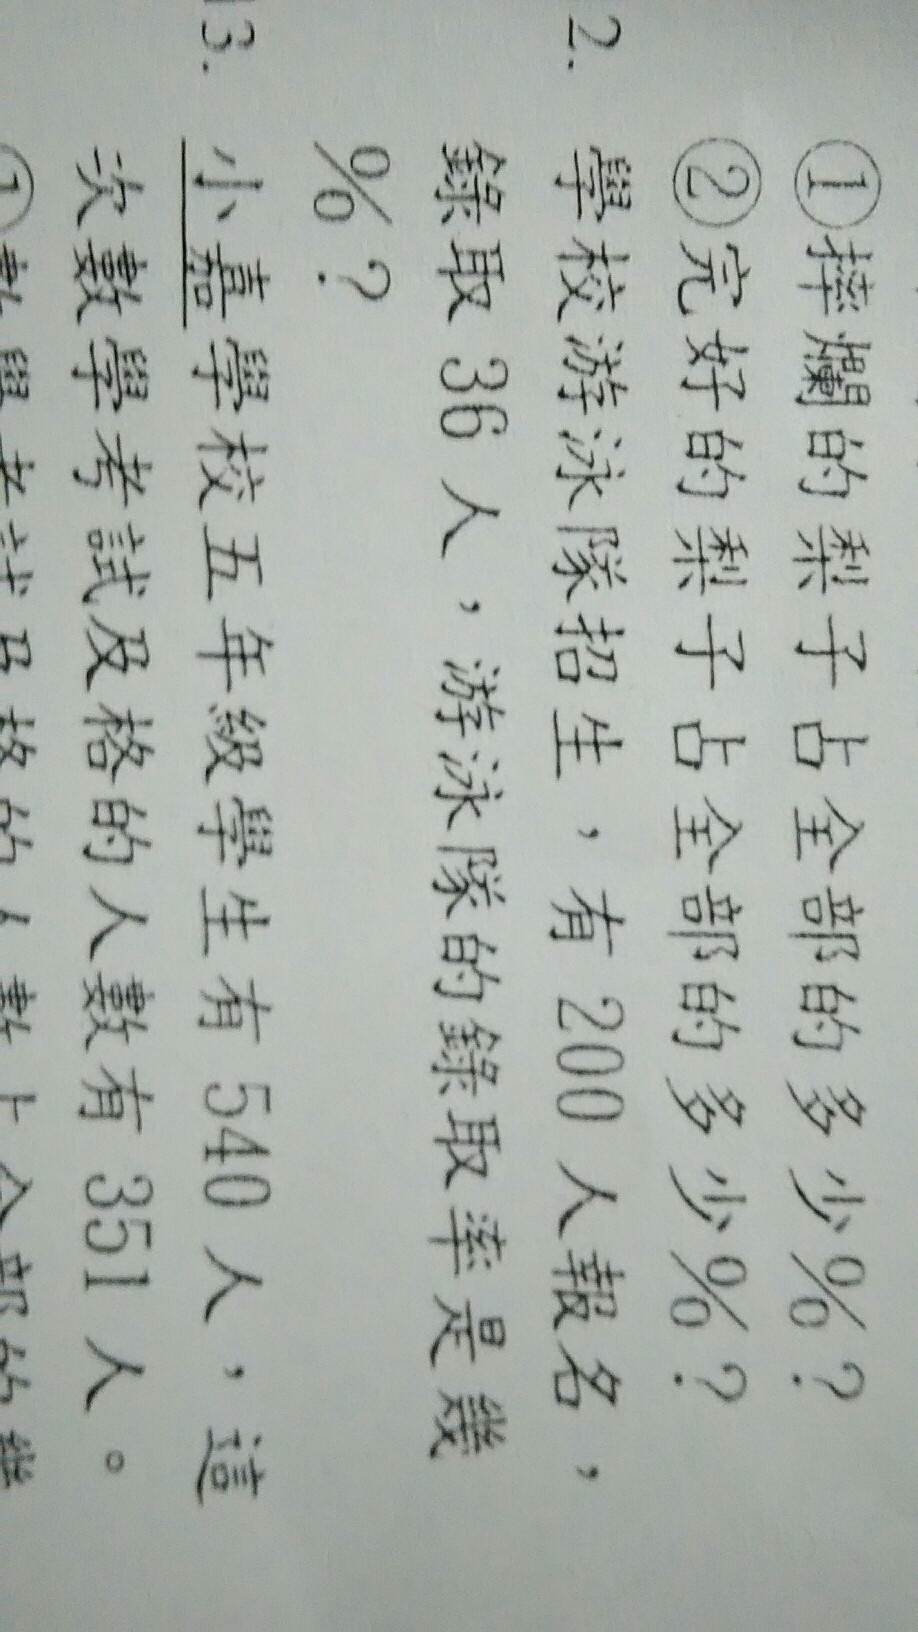 ①摔爛的梨子占全部的多少%?
②完好的梨子占全部的多少%?
2. 學校游泳隊招生,有 200 人報名,
錄取 36 人,游泳隊的錄取率是幾
%?
13. 小嘉學校五年級學生有 540 人,這
次數學考試及格的人數有 351 人。
①數學考試及格的人數占全部的幾